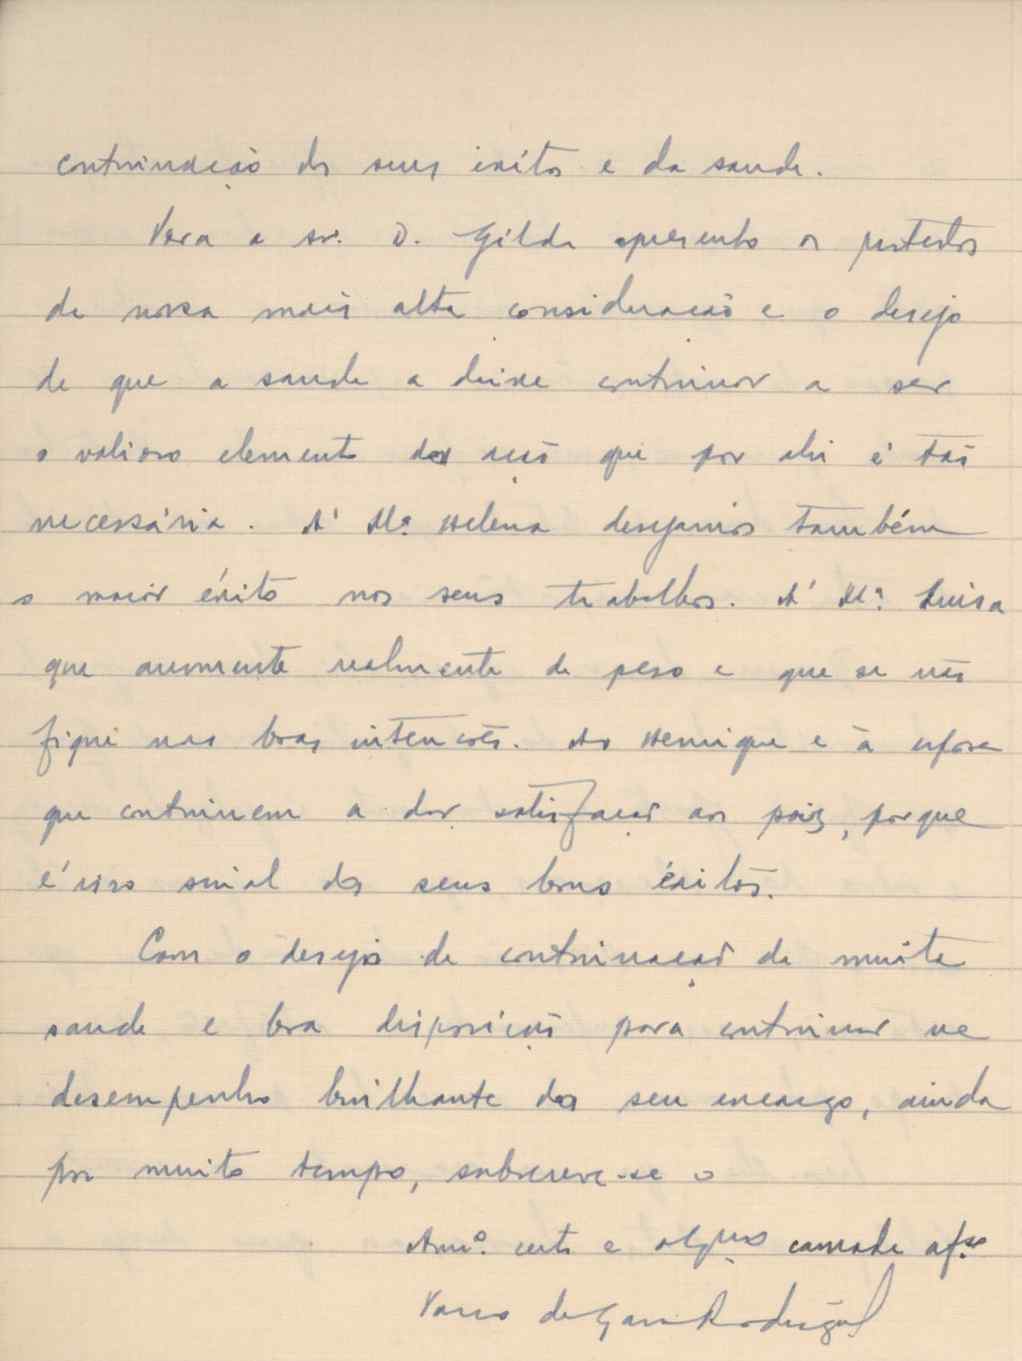 continuação dos seus êxitos e da saude.
Para a sr. D. Gilda apresento os protestos
de nossa mais alta consideração e o desejo
de que a saude a deixe continuar a ser
o valioso elemento de que por ahi é tão
necessária. Á Mª. Helena desejamos também
o maior éxito nos seus trabalhos. Á Mª. Luisa
que aumente realmente de peso e que se não
fique nas boas intenções. Ao Henrique e à esposa
que continuem a dar satisfação aos pais, porque
é isso sinal dos seus bons éxitos.
Com o desejo de continuação de muita
saude e boa disposição para continuar no
desempenho brilhante do seu encargo, ainda
por muito tempo, subscreve-se o
Amº. certo e camarada
Vasco de Rodrigues